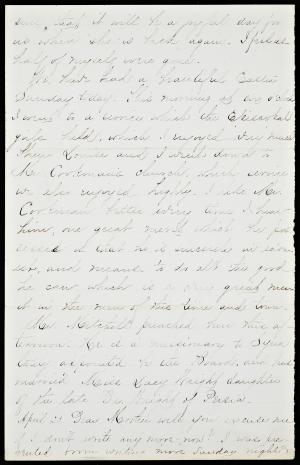 sure, that it will be a joyful day for
us when she is back again. I feel as
half of myself were gone.
We have had a beautiful Easter
Sunday today. This morning at six o'clock
I went to a service which the Episcopal
girls held, which I enjoyed very much.
Then Louise and I went down to
Mr. church, which service
we also enjoyed highly. I like Mr.
better every time I hear
him, one great merit which he pos-
sesses is that he is sincere in earn-
est, and means to do all the good
he can which is a very great merit
it in the men of this time and town.
Mr. Mitchell preached here this af-
ternoon. He is a missionary to Syria
they appointed by the Board, and has
married Miss Lucy Wright daughter
of the late Dr. Wright of Persia.
April 21 Dear Mother will you excuse me
if I don't write any more now? I was pre-
vented from writing more Sunday night